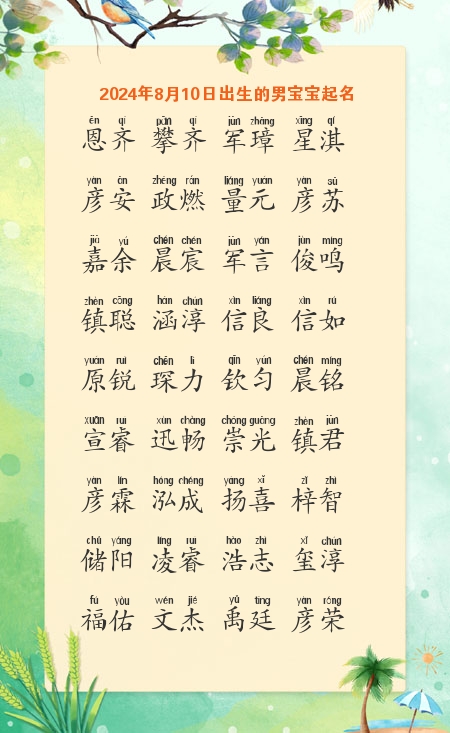 2024年8月10日出生的男宝宝起名
ēn qí pān qí jūn zhāng xīng qí
恩齐 攀齐 军璋 星淇
yàn ān zhèng rán liàng yuán yàn sū
彦安 政燃 量元 彦苏
jiā yú chén chén jūn yán jùn míng
嘉余 晨宸 军言 俊鸣
zhèn cōng hán chún xìn liáng xìn rú
镇聪 涵淳 信良 信如
yuán ruì chēn lì qīn yún chén míng
原锐 琛力 钦匀 晨铭
xuān ruì xùn chàng chóng guāng zhèn jūn
宣睿 迅畅 崇光 镇君
yàn lín hóng chéng yáng xǐ zǐ zhì
彦霖 泓成 扬喜 梓智
chǔ yáng líng ruì hào zhì xǐ chún
储阳 凌睿 浩志 玺淳
fú yòu wén jié yǔ tíng yàn róng
福佑 文杰 禹廷 彦荣